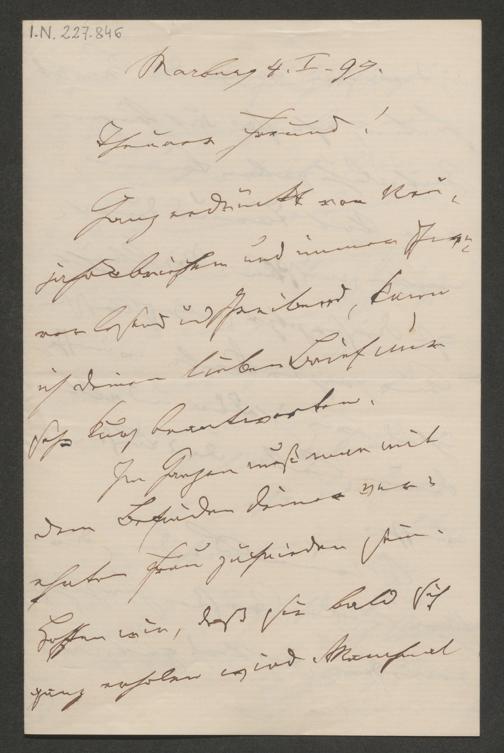 I.N. 227.846
Marburg 4. I. 99.
Theurer Freund!
Ganz erdrückt von Neu-
jahrsbriefen und immer
und schreibend, kann
ich deinen lieben Brief nur
sehr kurz beantworten.
Im Ganzen muß man mit
dem Befinden deiner ver-
ehrten Frau zufrieden sein.
Hoffen wir, daß sie bald sich
ganz erholen wird. Manchmal